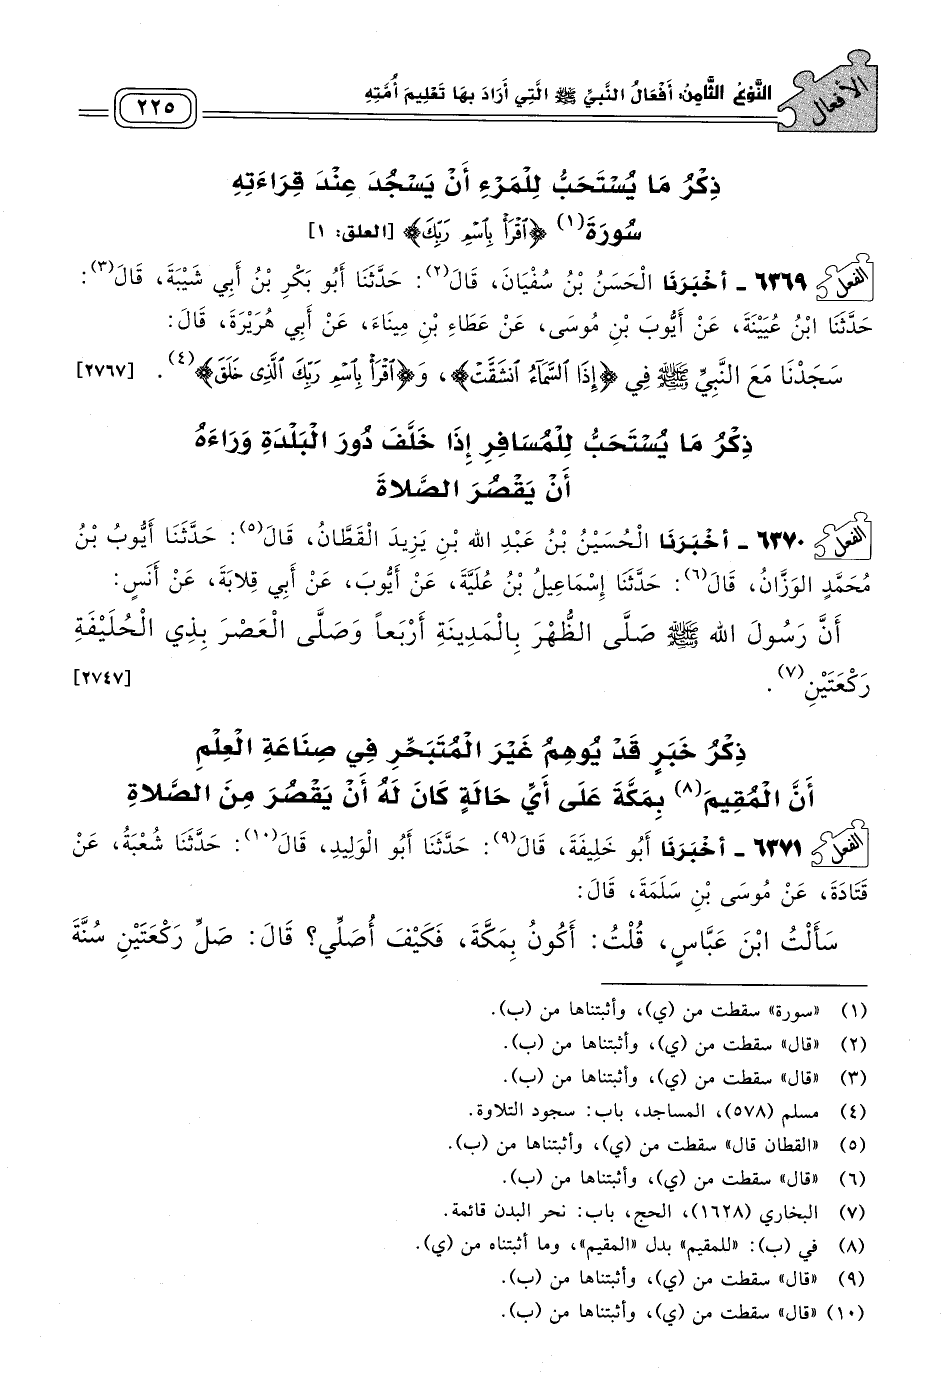 الأفعال
النَّوْعُ الثَّامِنُ: أَفْعَالُ النَّبِيِّ ﷺ الَّتِي أَرَادَ بِهَا تَعْلِيمَ أُمَّتِهِ
٢٢٥
ذِكْرُ مَا يُسْتَحَبُّ لِلْمَرْءِ أَنْ يَسْجُدَ عِنْدَ قِرَاءَتِهِ
سُورَةَ(١) ﴿ٱقْرَأْ بِٱسْمِ رَبِّكَ﴾ [العلق: ١]
الفعل ٦٣٦٩ - أَخْبَرَنَا الْحَسَنُ بْنُ سُفْيَانَ، قَالَ(٢): حَدَّثَنَا أَبُو بَكْرِ بْنُ أَبِي شَيْبَةَ، قَالَ(٣):
حَدَّثَنَا ابْنُ عُيَيْنَةَ، عَنْ أَيُّوبَ بْنِ مُوسَى، عَنْ عَطَاءِ بْنِ مِينَاءَ، عَنْ أَبِي هُرَيْرَةَ، قَالَ:
سَجَدْنَا مَعَ النَّبِيِّ ﷺ فِي ﴿إِذَا ٱلسَّمَآءُ ٱنشَقَّتْ﴾، وَ﴿ٱقْرَأْ بِٱسْمِ رَبِّكَ ٱلَّذِى خَلَقَ﴾(٤). [٢٧٦٧]
ذِكْرُ مَا يُسْتَحَبُّ لِلْمُسَافِرِ إِذَا خَلَّفَ دُورَ الْبَلْدَةِ وَرَاءَهُ
أَنْ يَقْصُرَ الصَّلَاةَ
الفعل ٦٣٧٠ - أَخْبَرَنَا الْحُسَيْنُ بْنُ عَبْدِ الله بْنِ يَزِيدَ الْقَطَّانُ، قَالَ(٥): حَدَّثَنَا أَيُّوبُ بْنُ
مُحَمَّدٍ الوَزَّانُ، قَالَ(٦): حَدَّثَنَا إِسْمَاعِيلُ بْنُ عُلَيَّةَ، عَنْ أَيُّوبَ، عَنْ أَبِي قِلَابَةَ، عَنْ أَنَسٍ:
أَنَّ رَسُولَ الله ﷺ صَلَّى الظُّهْرَ بِالْمَدِينَةِ أَرْبَعاً وَصَلَّى الْعَصْرَ بِذِي الْحُلَيْفَةِ
رَكْعَتَيْنِ(٧). [٢٧٤٧]
ذِكْرُ خَبَرٍ قَدْ يُوهِمُ غَيْرَ الْمُتَبَحِّرِ فِي صِنَاعَةِ الْعِلْمِ
أَنَّ الْمُقِيمَ(٨) بِمَكَّةَ عَلَى أَيِّ حَالَةٍ كَانَ لَهُ أَنْ يَقْصُرَ مِنَ الصَّلَاةِ
الفعل ٦٣٧١ - أَخْبَرَنَا أَبُو خَلِيفَةَ، قَالَ(٩): حَدَّثَنَا أَبُو الْوَلِيدِ، قَالَ(١٠): حَدَّثَنَا شُعْبَةُ، عَنْ
قَتَادَةَ، عَنْ مُوسَى بْنِ سَلَمَةَ، قَالَ:
سَأَلْتُ ابْنَ عَبَّاسٍ، قُلْتُ: أَكُونُ بِمَكَّةَ، فَكَيْفَ أُصَلِّي؟ قَالَ: صَلِّ رَكْعَتَيْنِ سُنَّةَ
(١) «سورة» سقطت من (ي)، وأثبتناها من (ب).
(٢) «قال» سقطت من (ي)، وأثبتناها من (ب).
(٣) «قال» سقطت من (ي)، وأثبتناها من (ب).
(٤) مسلم (٥٧٨)، المساجد، باب: سجود التلاوة.
(٥) «القطان قال» سقطت من (ي)، وأثبتناها من (ب).
(٦) «قال» سقطت من (ي)، وأثبتناها من (ب).
(٧) البخاري (١٦٢٨)، الحج، باب: نحر البدن قائمة.
(٨) في (ب): «للمقيم» بدل «المقيم»، وما أثبتناه من (ي).
(٩) «قال» سقطت من (ي)، وأثبتناها من (ب).
(١٠) «قال» سقطت من (ي)، وأثبتناها من (ب).